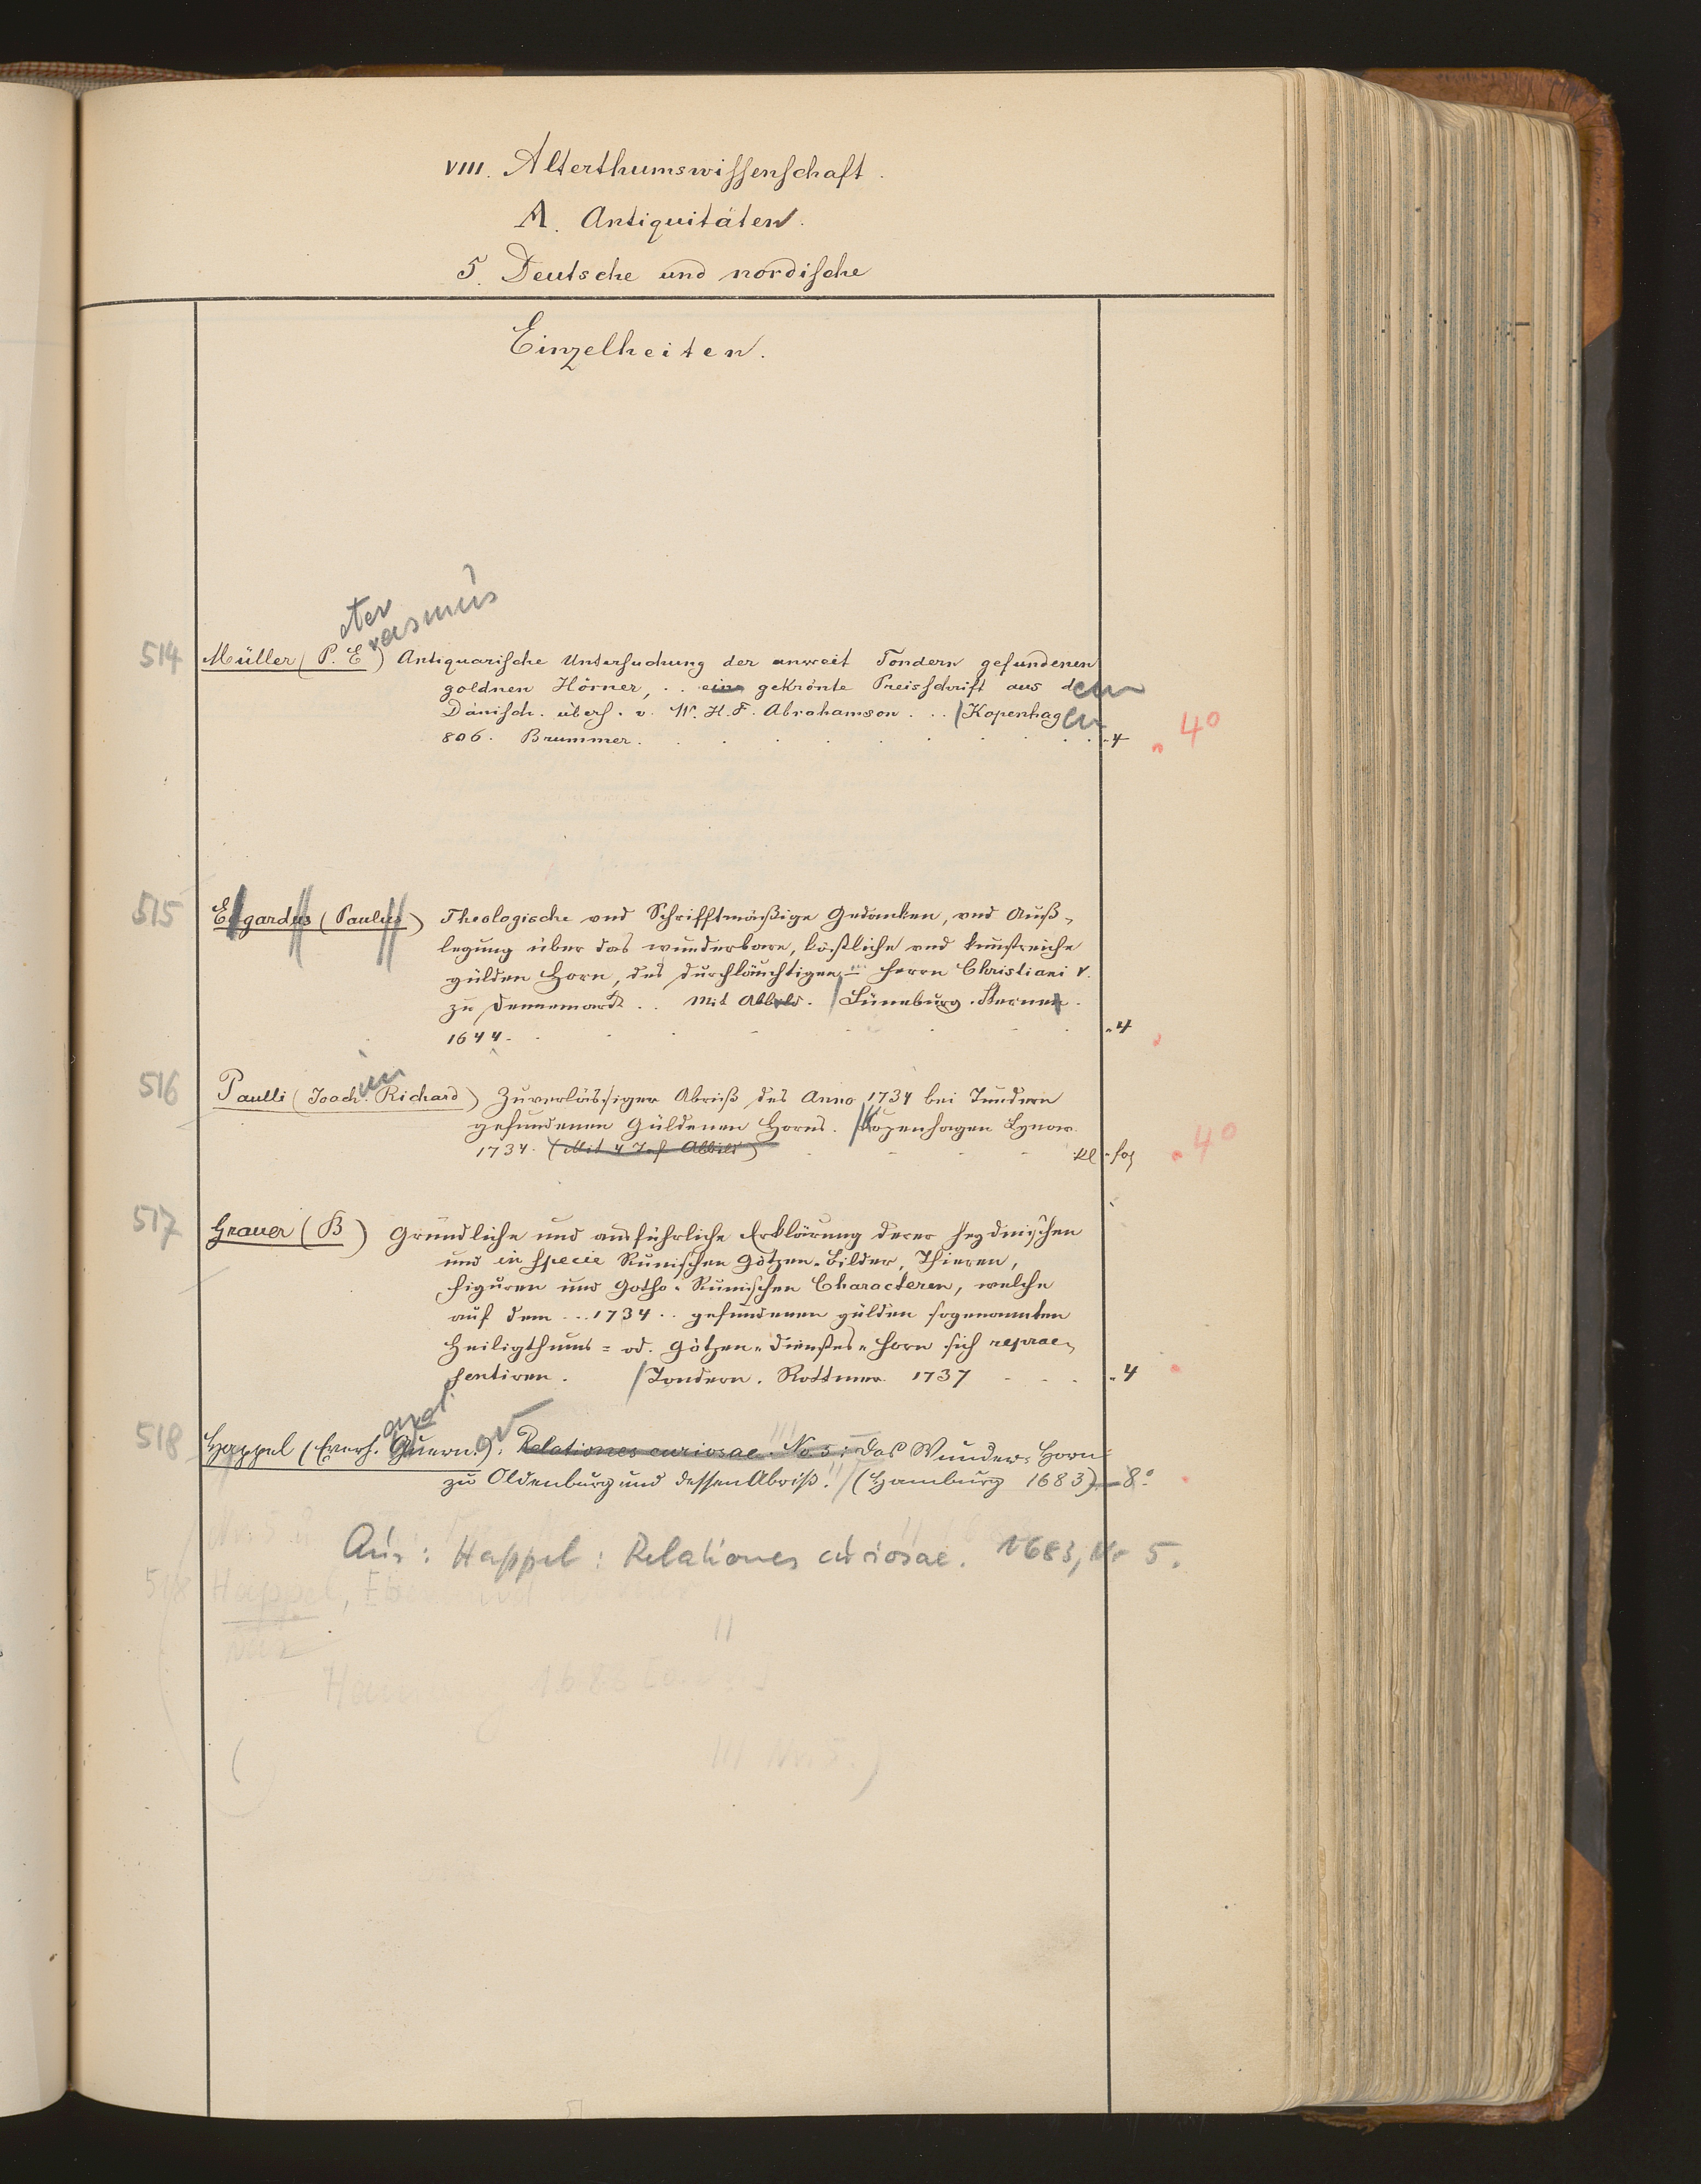 VIII. Alterthumswissenschaft.
A. Antiquitäten.
5. Deutsche und nordische
Einzelheiten.
eter
rasmus
514 Müller (P. E) Antiquarische Untersuchung der unweit Tondern gefundenen
goldnen Hörner, .. eine gekrönte Preisschrift aus dem
Dänisch. übers. v. W. H. F. Abrahamson ... / Kopenhagen
806. Brummer. 4 4°
515 Egardus (Paulus) Theologische vnd Schrifftmäßige Gedancken, vnd Auß-
legung über das wunderbare, köstliche vnd kunstreiche
gülden Horn, des durchläuchtigen ... Herrn Christiani V.
zu Dennemarck .. Mit Abbild. / Lüneburg. Sternen.
1644. 4
516 Paulli (Joachim Richard) Zuverlässiger Abriß des Anno 1734 bei Tundern
gefundenen Güldenen Horns. / Kopenhagen Lynow
1734. (Mit 4 Taf Abbild) kl. fol 4°
517 Grauer (B) Gründliche und ausführliche Erklärung derer heydnischen
und in specie Runischen Götzen-Bilder, Thieren,
Figuren und Gotho-Runischen Characteren, welche
auf dem ... 1734 .. gefundenen gülden sogenannten
Heiligthums= od. Götzen-Dienstes-Horn sich reprae-
sentiren. / Tondern. Rottmer 1737 4
518 Happel (Everh. Guern.): Relationes curiosae. No 5: Das Wunder-Horn
zu Oldenburg und dessen Abriß. / (Hamburg 1683) 8°
Aus: Happel: Relationes curiosae. 1683, Nr 5.
518 Happel, Eberhard Werner